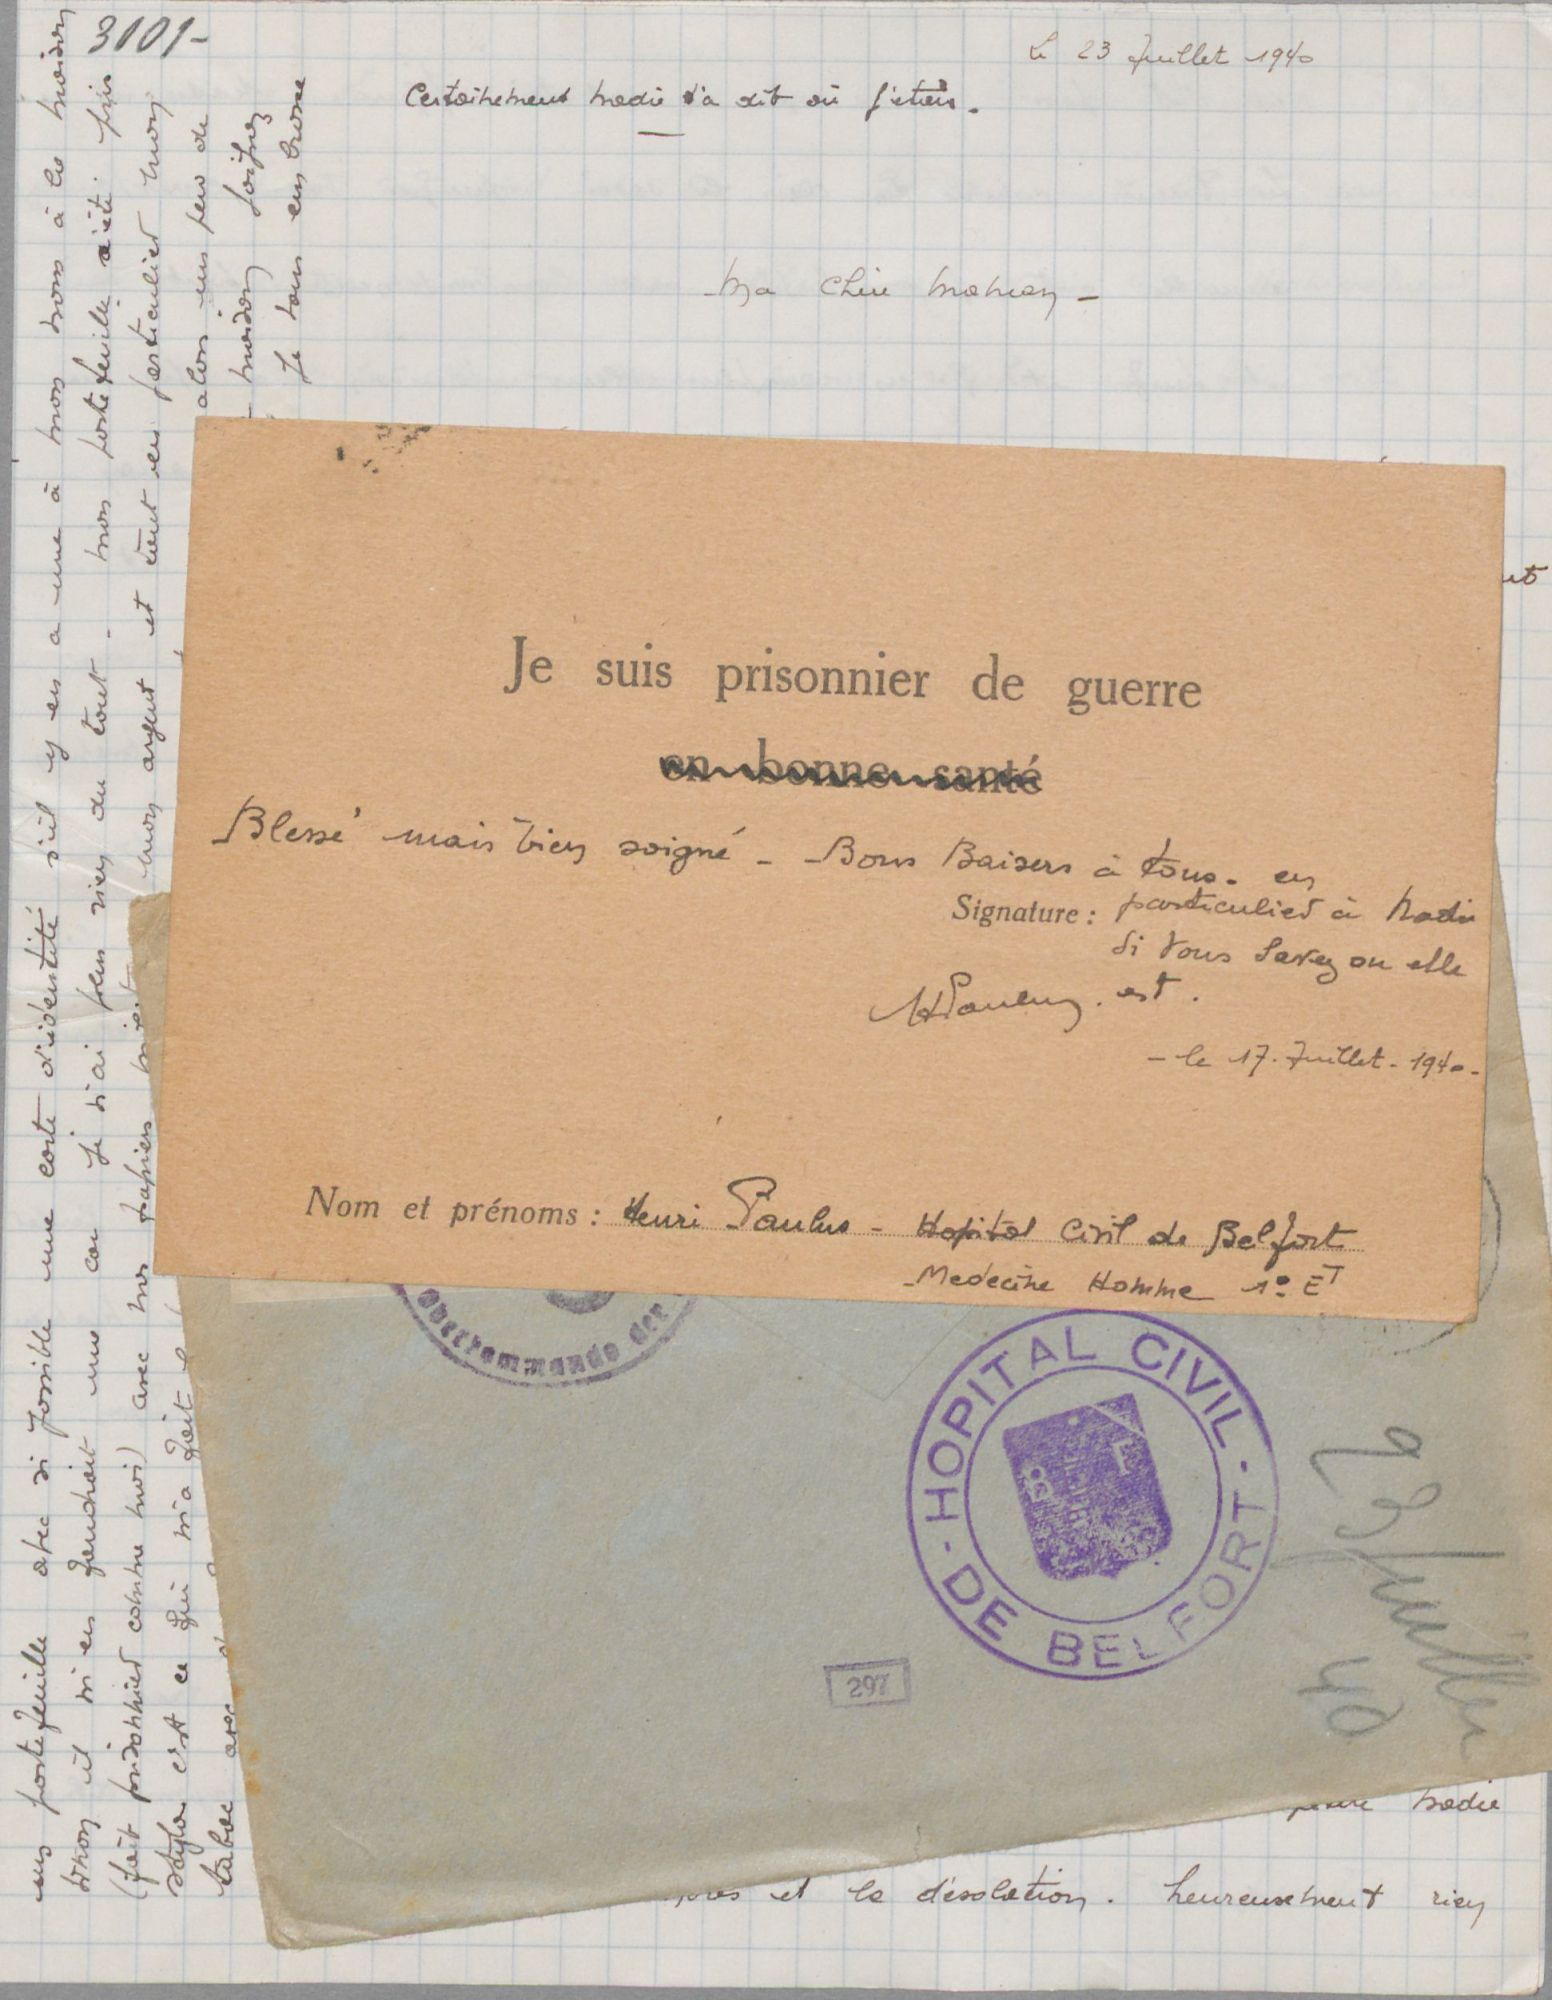 3101-
Le 23 Juillet 1940
Certainement Nadie t'a dit où j'étais.
Ma Chère Maman -
un portefeuille avec si possible une carte d'identité s'il y en a une à mon nom à la maison
sinon il m'en faudrait une car je n'ai plus rien du tout - mon portefeuille a été pris
(fait prisonnier comme moi) avec mes papiers mon argent et tout en particulier mon
stylo c'est ce qui m'a fait alors un peu de
tabac avec maison soignez
Je vous embrasse
Je suis prisonnier de guerre
en bonne santé
Blessé mais bien soigné - Bons Baisers à tous. en
Signature : particulier à Nadie
si vous savez ou elle
HPaulus. est.
- le 17. Juillet. 1940-
Nom et prénoms : Henri Paulus - Hopital Civil de Belfort
Medecine Homme 1° ET
Oberkommando der
HOPITAL CIVIL
- DE BELFORT -
297
23 Juillet
40
Nadie
et la désolation. heureusement rien